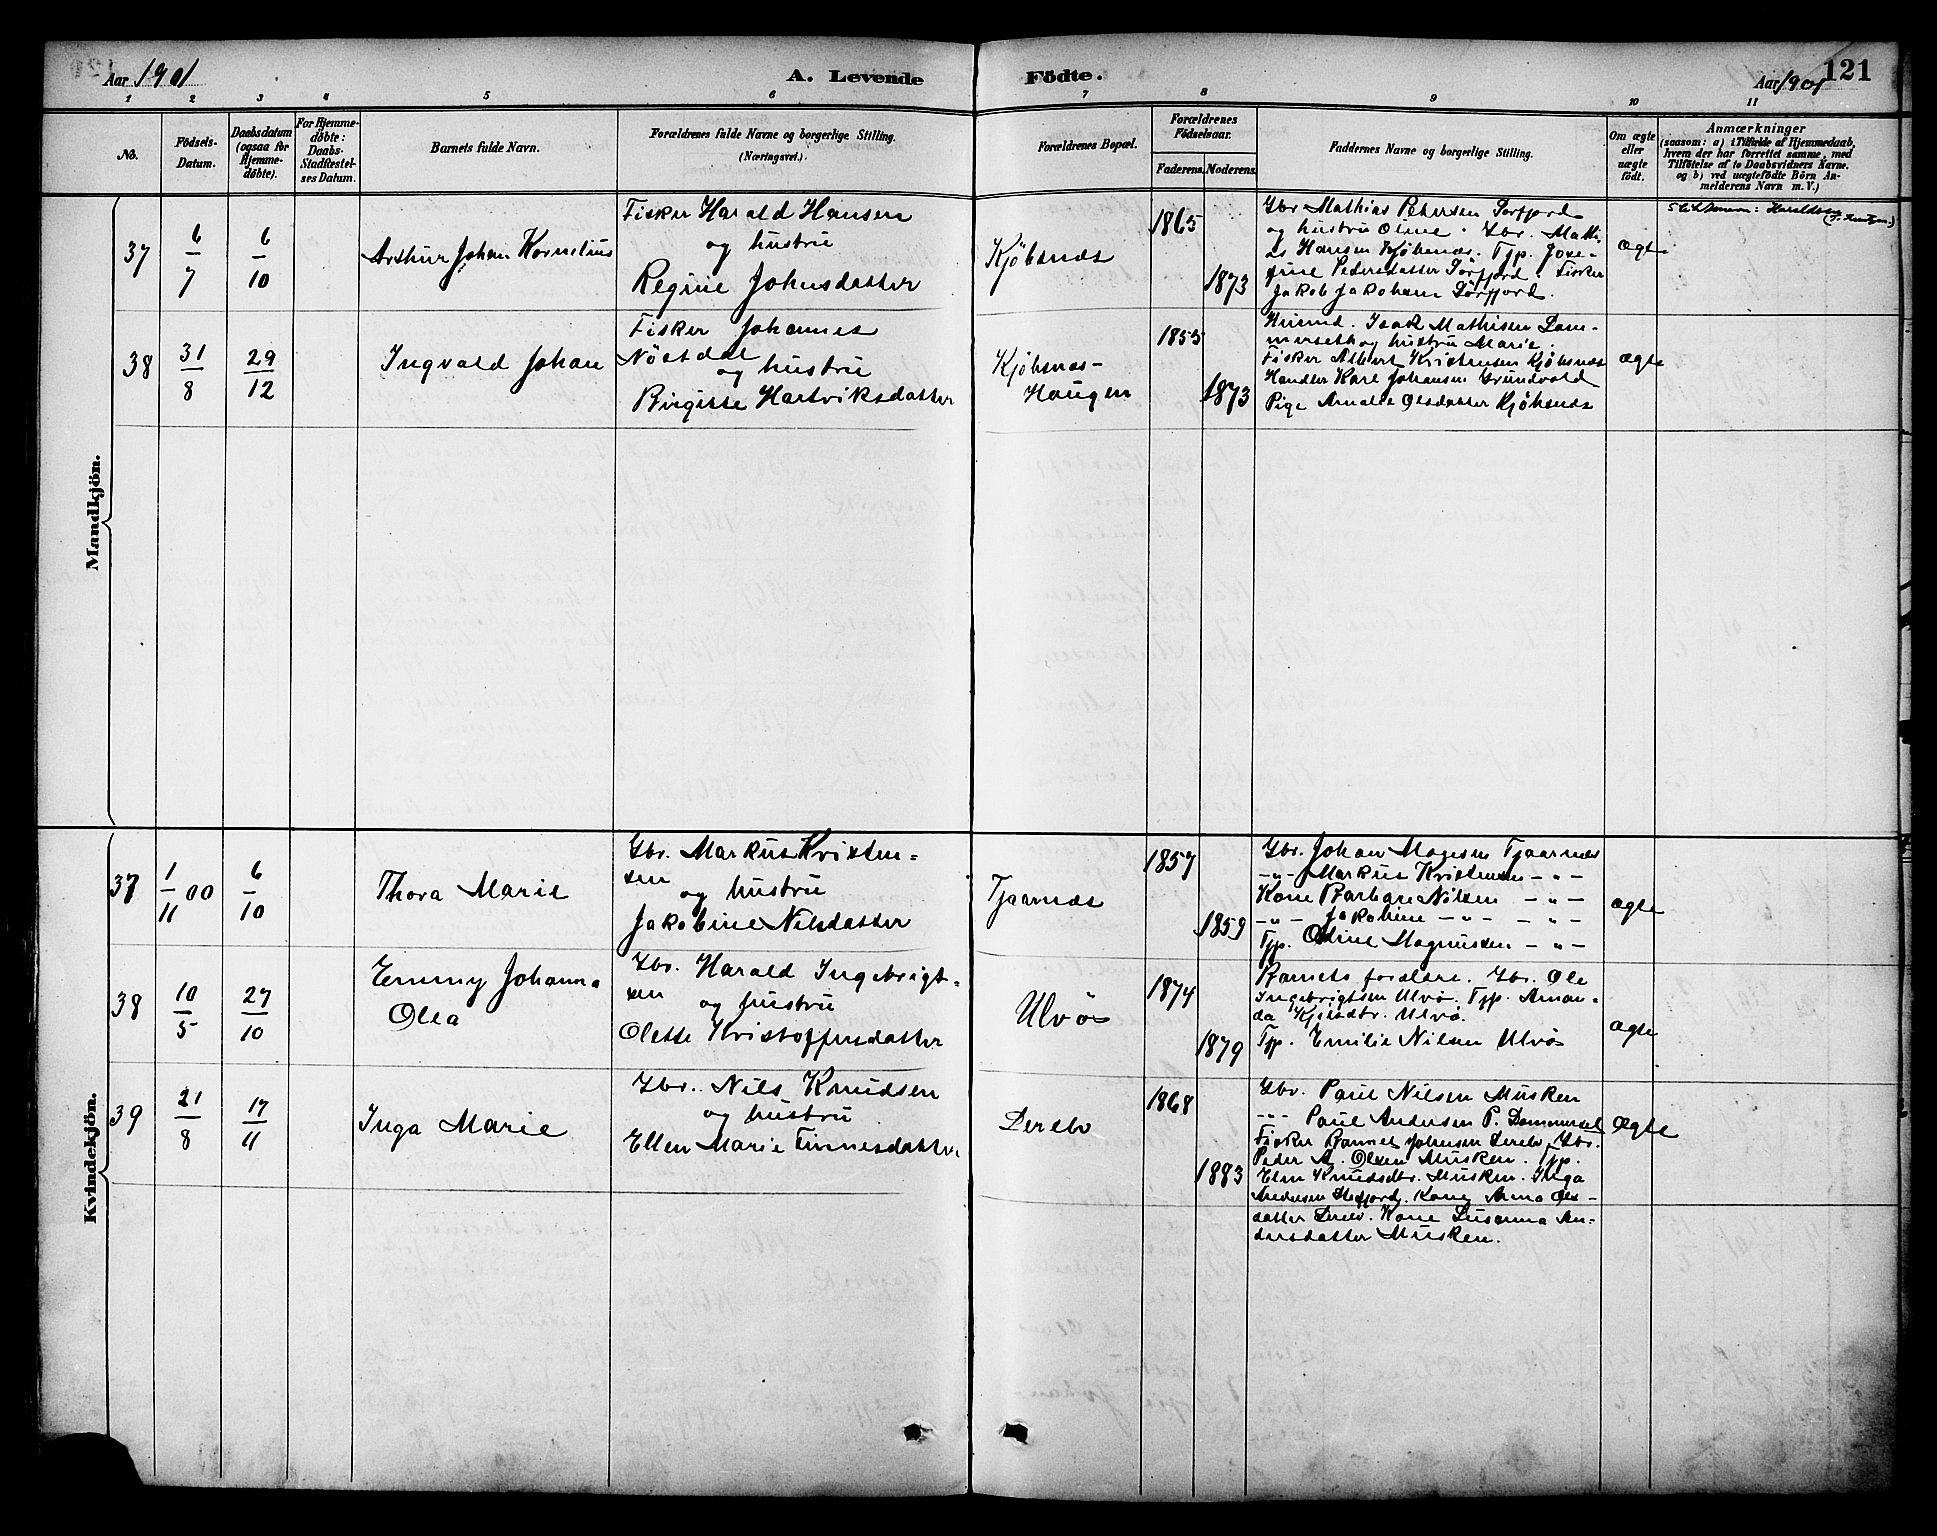 Aar 1901
A. Levende
Födte.
Aar 1901
121
1 2 3 4 5 6 7 8 9 10 11
No.
Födsels-
Datum.
Daabsdatum
(ogsaa for
Hjemme-
döbte).
For Hjemme-
döbte:
Daabs-
Stadfæstel-
ses Datum.
Barnets fulde Navn.
Forældrenes fulde Navne og borgerlige Stilling.
(Næringsvei.)
Forældrenes Bopæl.
Forældrenes
Födselsaar.
Faderens. Moderens.
Faddernes Navne og borgerlige Stilling.
Om ægte
eller
uægte
födt.
Anmærkninger
(saasom: a) i Tilfælde af Hjemmedaab,
hvem der har forrettet samme, med
Tilföielse af to Daabsvidners Navne.
og b) ved uægtefödte Börn An-
melderens Navn m. V.)
Mandkjön.
37
6/7
6/10
Arthur Johan Kornelius
Fisker Harald Hansen
og hustru
Regine Johnsdatter
Kjöbsnæs
1865
1873
Gbr Mathias Petersen Sörfjord
og hustru Oline. Gbr. Mathi-
as Hansen Kjöbsnæs. Tjp. Jose-
fine Pedersdatter Sörfjord. Fisker
Jakob Jakobsen Sörfjord.
ægte
Slektsnavn: Haraldsen
38
31/8
29/12
Ingvald Johan
Fisker Johannes
Nöstdal
og hustru
Birgitte Hartviksdatter
Kjöbsnæs-
Haugen
1855
1873
Husmd. Isak Mathisen Dom-
merseth og hustru Marie.
Fisker Albert Kristensen Kjöbsnæs
Handler Karl Johansen Grundvold
Pige Amalie Olsdatter Kjöbsnæs
ægte
Kvindekjön.
37
1/11 00
6/10
Thora Marie
Gbr. Markus Kristen-
sen
og hustru
Jakobine Nilsdatter
Tjaarnæs
1857
1859
Gbr. Johan Mogesen Tjaarnæs
-"- Markus Kristensen -"-
Kone Barbara Nilsen -"-
-"- Jakobine -"- -"-
Tjp. Odine Magnussen -"-
ægte
38
10/5
27/10
Emmy Johanna
Olea
Gbr. Harald Ingebrigt-
sen
og hustru
Olette Kristoffersdatter
Ulvö
1874
1879
Barnets forældre. Gbr. Ole
Ingebrigtsen Ulvö. Tjp. Aman-
da Kjelsdtr. Ulvö.
Tjp. Emilie Nilsen Ulvö
ægte
39
21/8
17/11
Inga Marie
Gbr. Nils Knudsen
og hustru
Ellen Marie Finnesdatter
Derebv
1868
1883
Gbr. Paul Nilsen Musken
-"- Paul Andersen P. Dommersel
Fisker Johnsen Gbr.
Peder A. Olsen Musken. Tjp.
Elen Knudsdtr. Musken. Inga
Andersen Hefjord. Kone Anna Ols-
datter. Kone Susanna An-
dersdatter Musken.
ægte